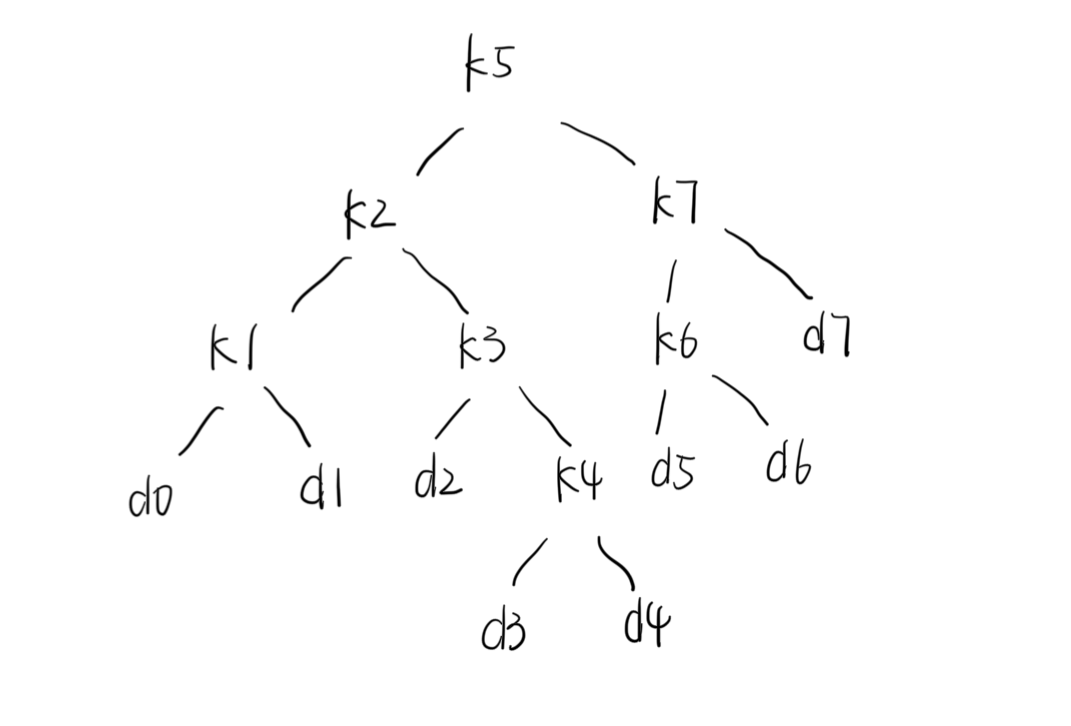 k5
k2 k7
k1 k3 k6 d7
d0 d1 d2 k4 d5 d6
d3 d4